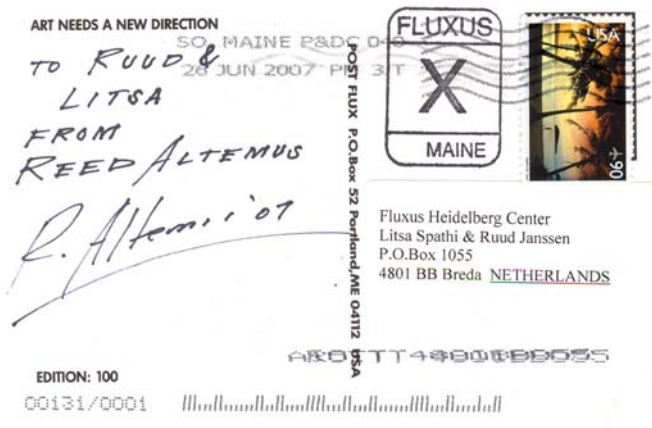 ART NEEDS A NEW DIRECTION
SO. MAINE P&DC 040
28 JUN 2007 PM 3 T
TO RUUD &
LITSA
FROM
REED ALTEMUS
R. Altemus '07
EDITION: 100
00131/0001
POST FLUX P.O.Box 52 Portland,ME 04112 USA
FLUXUS
X
MAINE
USA
90
Fluxus Heidelberg Center
Litsa Spathi & Ruud Janssen
P.O.Box 1055
4801 BB Breda NETHERLANDS